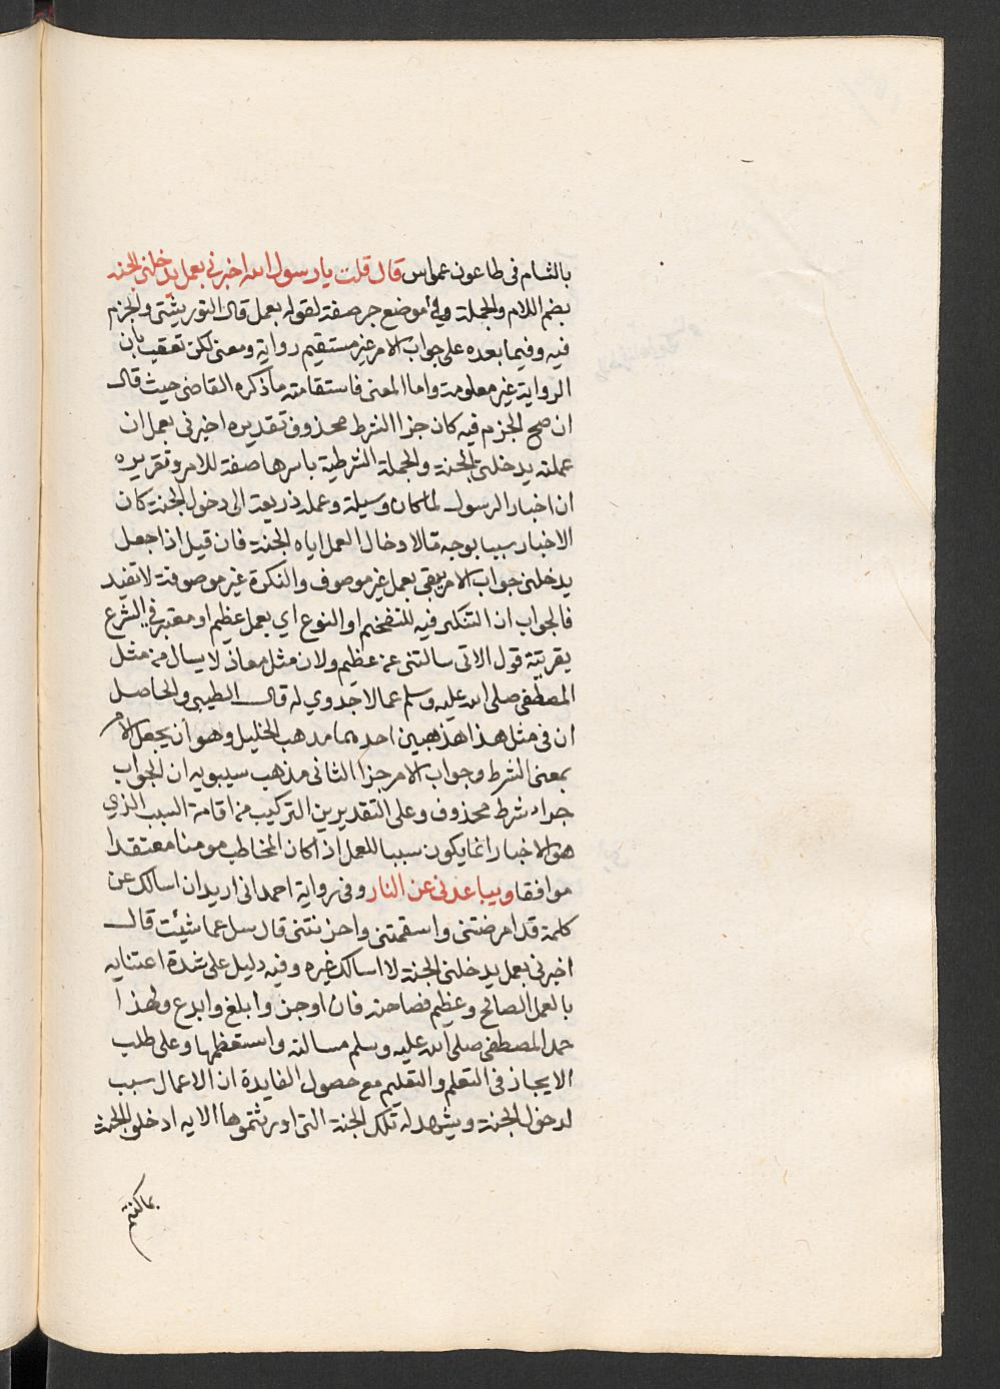 بالشام في طاعون عمواس قال قلت يا رسول الله اخبرني بعمل يدخلني الجنة
بضم اللام والجملة في موضع جر صفة لقوله بعمل قال التوربشتي والجزم
فيه وفيما بعده على جواب الامر غير مستقيم رواية ومعنى لكن تعقب بان
الرواية غير معلومة واما المعنى فاستقامته ما ذكره القاضي حيث قال
ان صح الجزم فيه كان جزا الشرط محذوف تقديره اخبرني بعمل ان
عملته يدخلني الجنة والجملة الشرطية باسرها صفة للامر وتقريره
ان اخبار الرسول لما كان وسيلة وعمله ذريعة الى دخول الجنة كان
الاخبار سببا بوجه مّا لادخال العمل اياه الجنة فان قيل اذا جعل
يدخلني جواب الامر يبقى بعمل غير موصوف والنكرة غير موصوفة لا تفيد
فالجواب ان التنكير فيه للتفخيم او النوع اي بعمل عظيم او معتبر في الشرع
بقرينة قول الاتى سالتني عن عظيم ولان مثل معاذ لا يسال من مثل
المصطفى صلى الله عليه وسلم عما لا جدوي له قال الطيبي والحاصل
ان في مثل هذا مذهبين احدهما مذهب الخليل وهو ان يجعل الامر
بمعنى الشرط وجواب الامر جزا الثاني مذهب سيبويه ان الجواب
جزاء شرط محذوف وعلى التقديرين التركيب من اقامة السبب الذي
هو الاخبار انما يكون سببا للعمل اذا كان المخاطب مومنا معتقدا
موافقا ويباعدني عن النار وفي رواية احمد اني اريد ان اسالك عن
كلمة قد امرضتني واسقمتني واحزنتني قال سل عما شئت قال
اخبرني بعمل يدخلني الجنة لا اسالك غيره وفيه دليل على شدة اعتنايه
بالعمل الصالح وعظيم فصاحته فان اوجز وابلغ وابدع ولهذا
حمد المصطفى صلى الله عليه وسلم مسالته واستعظمها وعلى طلب
الايجاز في التعلم والتعليم مع حصول الفايدة ان الاعمال سبب
لدخول الجنة ويشهد له تلك الجنة التي اورثتموها الايه ادخلوا الجنة
بما كنتم